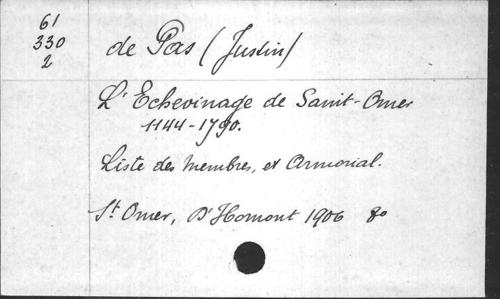 61
330
2
de Pas (Justin)
L'Echevinage de Saint-Omer
1144-1790.
Liste des membres, et Armorial.
St Omer, D'Homont 1906 8o